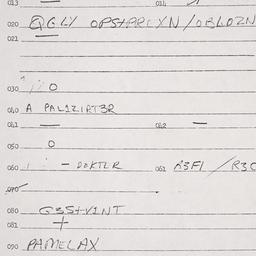 013 — 014
020 QGLY OPS+PRLYN/OBLOZN
021 —
030 O
040 A PAL1ZIRT3R
041 — 042 —
050 O
060 - DOKTLR 061 R3F1 / R3C
070
080 G3S+V1NT
081 +
090 PAMELAX